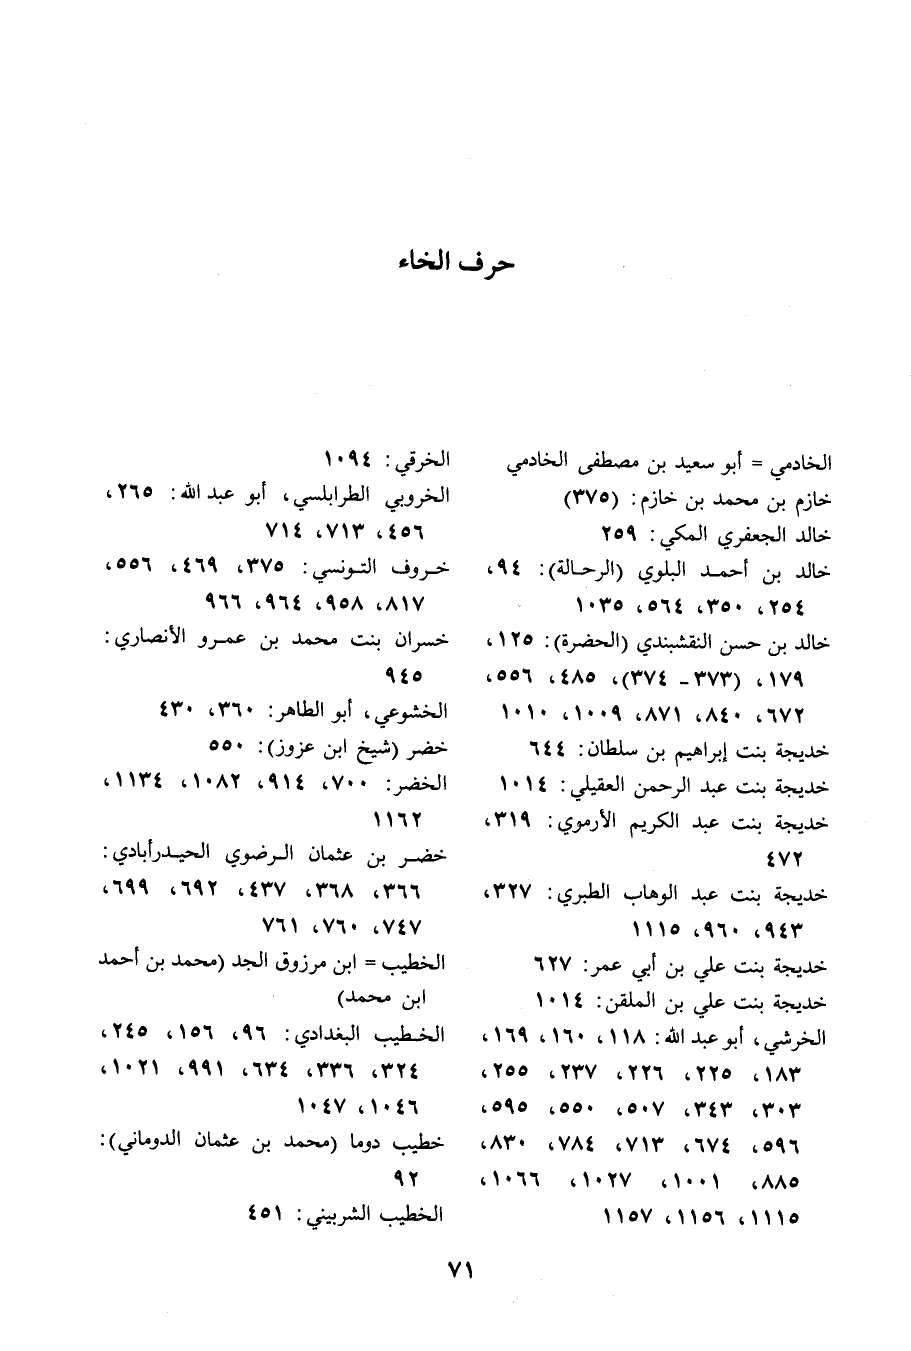 حرف الخاء
الخادمي = أبو سعيد بن مصطفى الخادمي
خازم بن محمد بن خازم: (٣٧٥)
خالد الجعفري المكي: ٢٥٩
خالد بن أحمد البلوي (الرحالة): ٩٤،
٢٥٤، ٣٥٠، ٥٦٤، ١٠٣٥
خالد بن حسن النقشبندي (الحضرة): ١٢٥،
١٧٩، (٣٧٣ - ٣٧٤)، ٤٨٥، ٥٥٦،
٦٧٢، ٨٤٠، ٨٧١، ١٠٠٩، ١٠١٠
خديجة بنت إبراهيم بن سلطان: ٦٤٤
خديجة بنت عبد الرحمن العقيلي: ١٠١٤
خديجة بنت عبد الكريم الأرموي: ٣١٩،
٤٧٢
خديجة بنت عبد الوهاب الطبري: ٣٢٧،
٩٤٣، ٩٦٠، ١١١٥
خديجة بنت علي بن أبي عمر: ٦٢٧
خديجة بنت علي بن الملقن: ١٠١٤
الخرشي، أبو عبد الله: ١١٨، ١٦٠، ١٦٩،
١٨٣، ٢٢٥، ٢٢٦، ٢٣٧، ٢٥٥،
٣٠٣، ٣٤٣، ٥٠٧، ٥٥٠، ٥٩٥،
٥٩٦، ٦٧٤، ٧١٣، ٧٨٤، ٨٣٠،
٨٨٥، ١٠٠١، ١٠٢٧، ١٠٦٦،
١١١٥، ١١٥٦، ١١٥٧
الخرقي: ١٠٩٤
الخروبي الطرابلسي، أبو عبد الله: ٢٦٥،
٤٥٦، ٧١٣، ٧١٤
خروف التونسي: ٣٧٥، ٤٦٩، ٥٥٦،
٨١٧، ٩٥٨، ٩٦٤، ٩٦٦
خسران بنت محمد بن عمرو الأنصاري:
٩٤٥
الخشوعي، أبو الطاهر: ٣٦٠، ٤٣٠
خضر (شيخ ابن عزوز): ٥٥٠
الخضر: ٧٠٠، ٩١٤، ١٠٨٢، ١١٣٤،
١١٦٢
خضر بن عثمان الرضوي الحيدرأبادي:
٣٦٦، ٣٦٨، ٤٣٧، ٦٩٢، ٦٩٩،
٧٤٧، ٧٦٠، ٧٦١
الخطيب = ابن مرزوق الجد (محمد بن أحمد
ابن محمد)
الخطيب البغدادي: ٩٦، ١٥٦، ٢٤٥،
٣٢٤، ٣٣٦، ٦٣٤، ٩٩١، ١٠٢١،
١٠٤٦، ١٠٤٧
خطيب دوما (محمد بن عثمان الدوماني):
٩٢
الخطيب الشربيني: ٤٥١
٧١